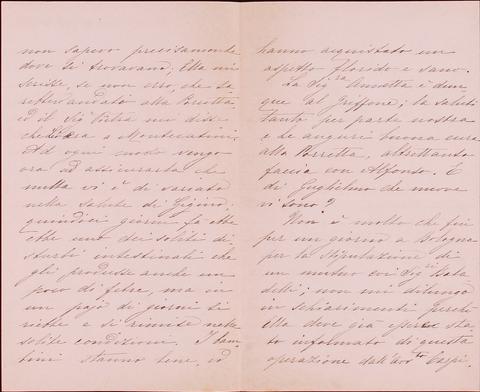 non sapevo precisamente
dove si trovavano. Ella mi
scrisse, se non erro, che sa
rebbero andato alla Porretta
ed il Sig. mi disse
che era a Montecatini.
Ad ogni modo vengo
ora ad assicurarla che
nulla vi è di variato
nella salute di Gigino.
quindici giorni fa ebbe
ebbe uno dei soliti di
sturbi intestinali che
gli produsse anche un
poco di febre, ma in
un pajo di giorni si
riebbe e si rimise nelle
solite condizioni. I bam
bini stanno bene, ed
hanno acquistato un
aspetto florido e sano.
La Sig.ra Annetta è dun
que al Griffone; la saluti
tanto per parte nostra
e le auguri buona cura
alla Porretta, altrettanto
faccia con Alfonso. E
di Guglielmo che nuove
vi sono?
Non è molto che fui
per un giorno a Bologna
per la stipulazione di
un mutuo coi Sig.ri
delli; non mi dilungo
in schiarimenti perchè
Ella deve già essere sta
to informato di questa
operazione dall'Avv.to